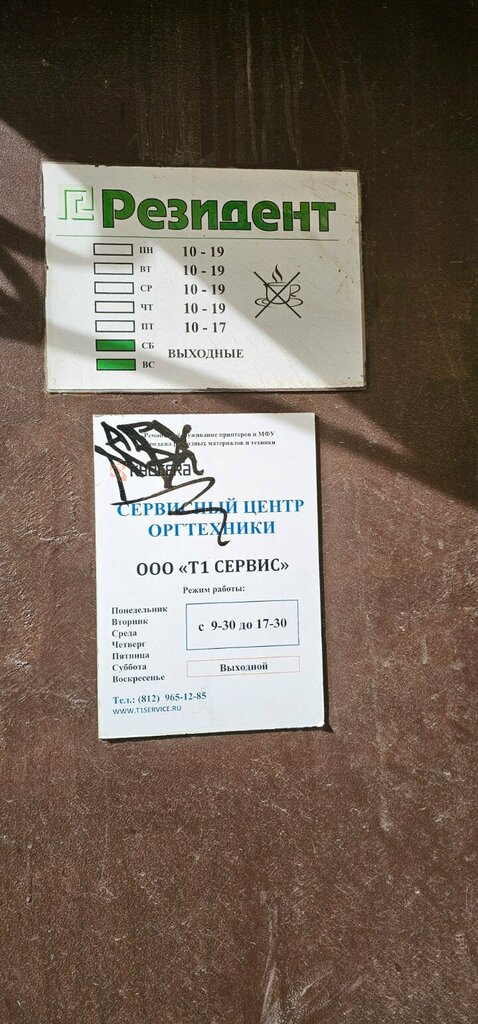 Резидент
ПН 10 - 19
ВТ 10 - 19
СР 10 - 19
ЧТ 10 - 19
ПТ 10 - 17
СБ
ВЫХОДНЫЕ
ВС
принтеров и МФУ
материалов и техники
СЕРВИСНЫЙ ЦЕНТР
ОРГТЕХНИКИ
ООО «Т1 СЕРВИС»
Режим работы:
Понедельник
Вторник
Среда
Четверг
Пятница
с 9-30 до 17-30
Суббота
Воскресенье
Выходной
Тел.: (812) 965-12-85
WWW.T1SERVICE.RU